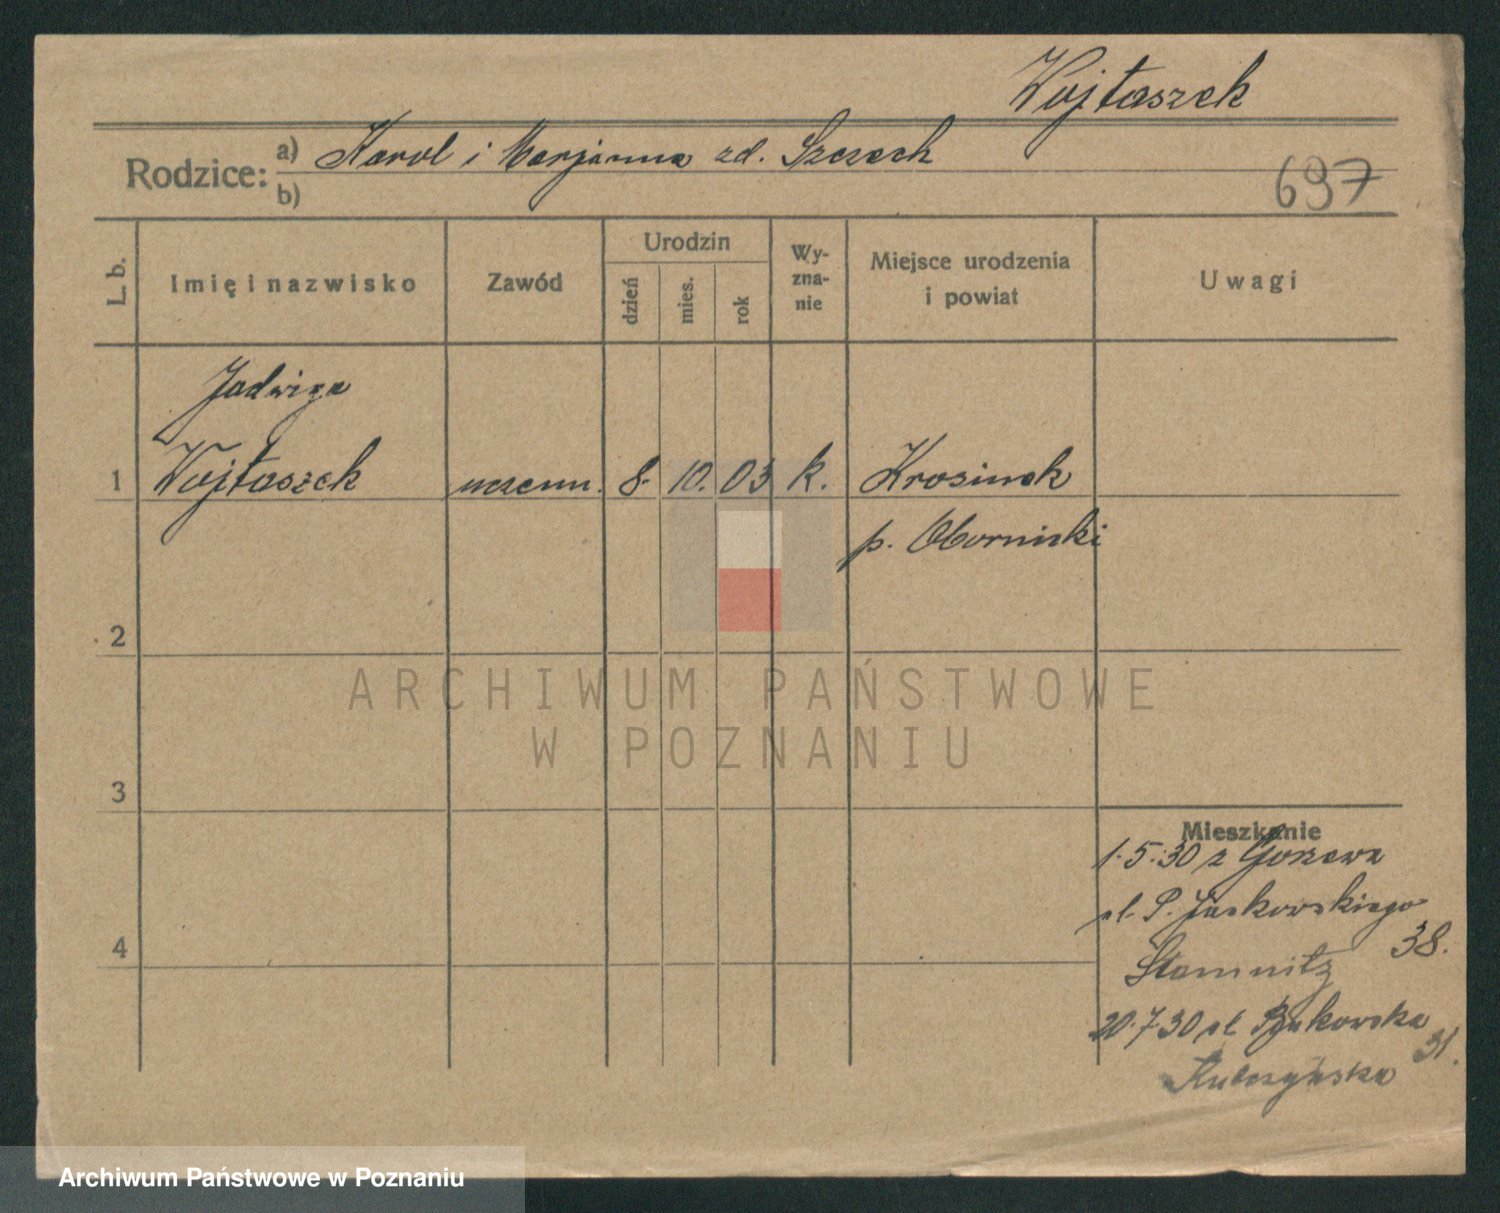 Wojtaszek
Rodzice: a) Karol i Marjanna zd. Szczech
b)
697
L. b.
Imię i nazwisko
Zawód
Urodzin
dzień
mies.
rok
Wy-
zna-
nie
Miejsce urodzenia
i powiat
Uwagi
Jadwiga
1 Wojtaszek uczenn. 8. 10. 03 k. Krosinek
p. Obornicki
2
3
4
Mieszkanie
1.5.30 z
P. Jackowskiego
38.
Stamnitz
20.7.30 Bukowska
31.
Kulczyńska
ARCHIWUM PAŃSTWOWE
W POZNANIU
Archiwum Państwowe w Poznaniu